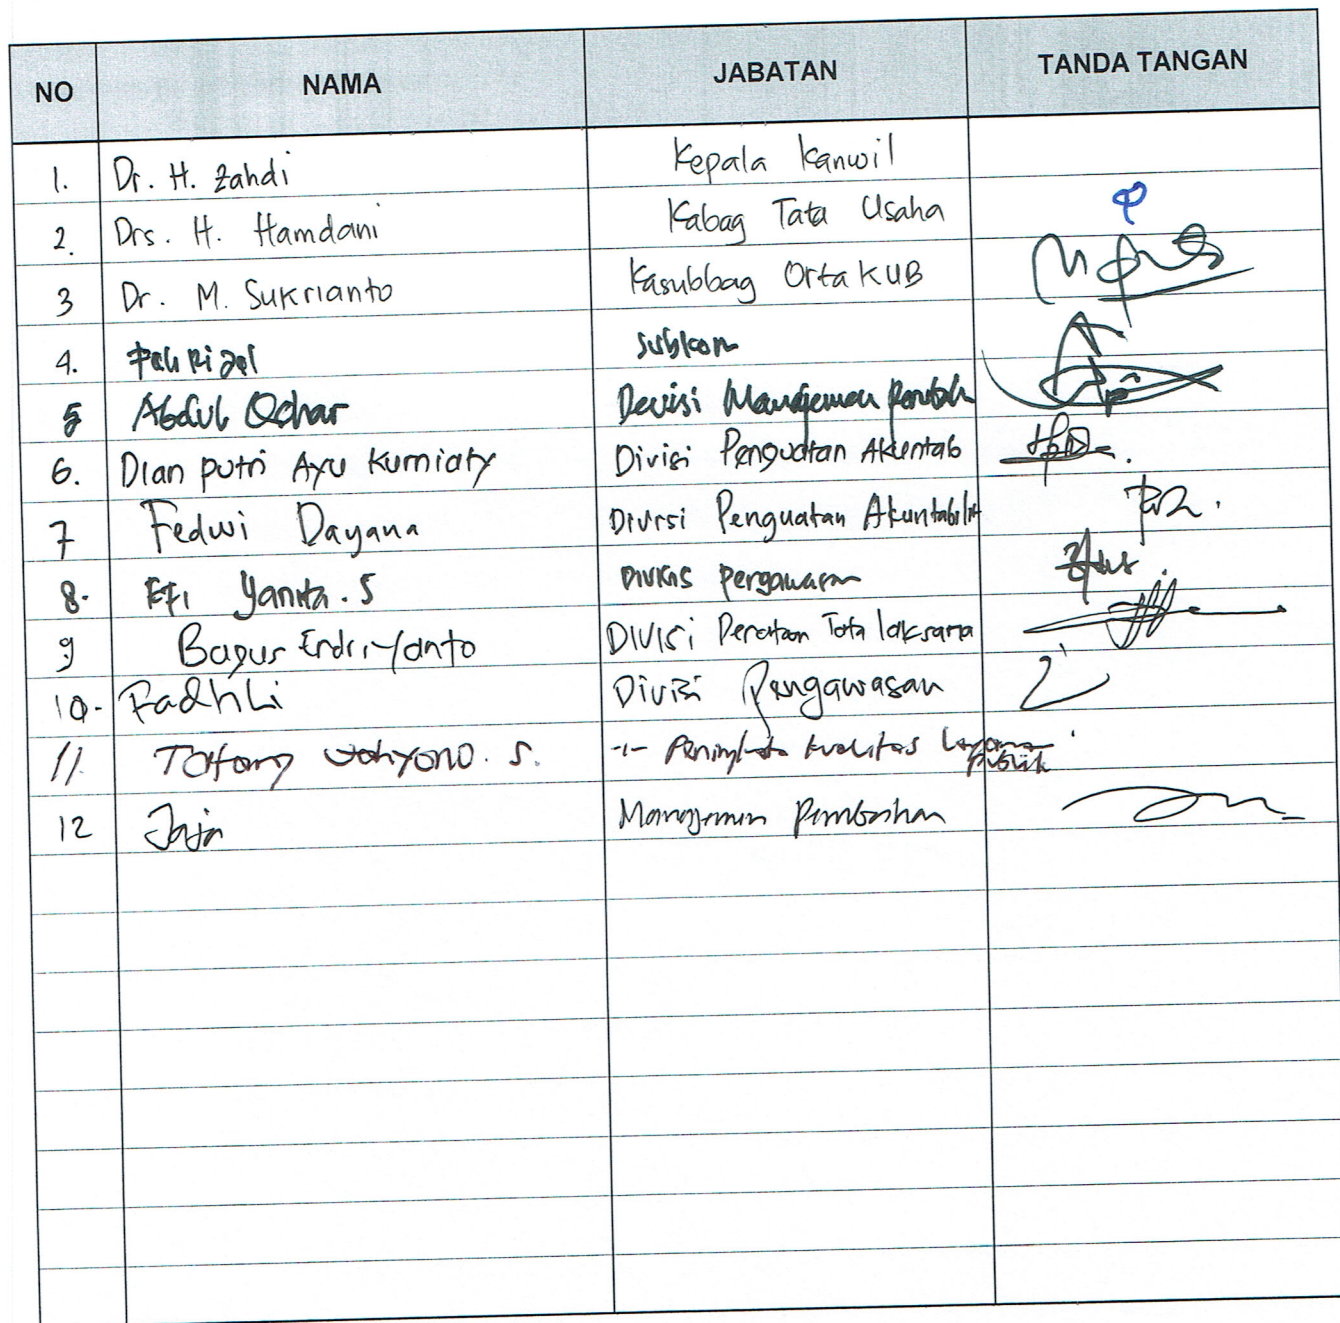 NO NAMA JABATAN TANDA TANGAN
1. Dr. H. Zahdi Kepala Kanwil
2. Drs. H. Hamdani Kabag Tata Usaha
3 Dr. M. Sukrianto Kasubbag Orta KUB
4. Fahrizal Subkor
5 Abdul Qohar Devisi Manajemen
6. Dian putri Ayu Kurniaty Divisi Penguatan Akuntab
7 Fedwi Dayana Divisi Penguatan Akuntabilit
8. Efi Yanita. S Pengawasan
9 Bagus Endriyanto DIVISI Tata laksana
10. Fadhli Divisi Pengawasan
11. S. kualitas publik
12 Jaja